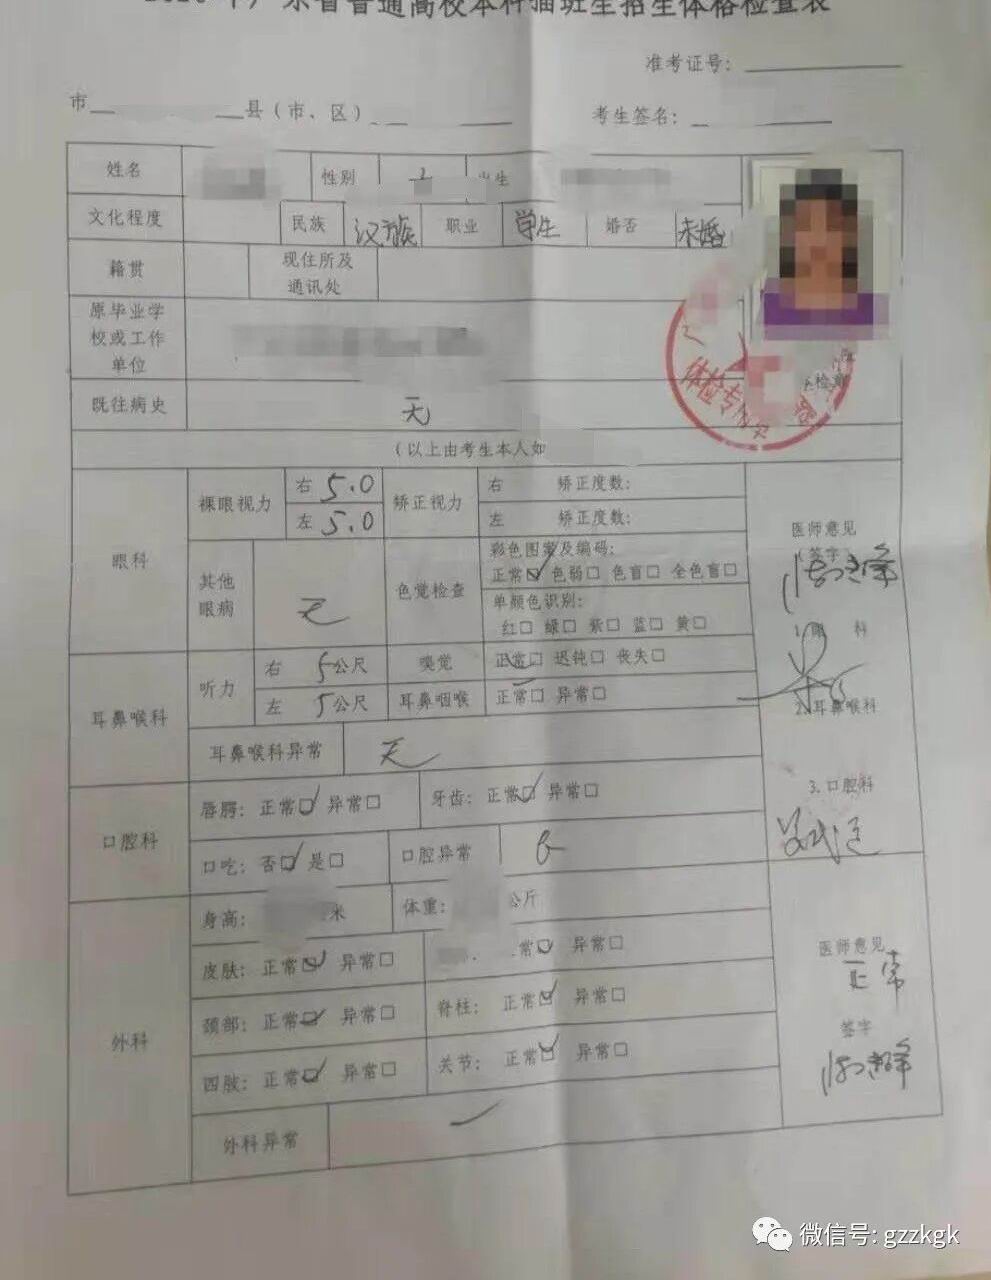 年广东省普通高校本科插班生招生体格检查表
准考证号：
市 县（市、区）
考生签名：
姓名 性别 出生
文化程度 民族 汉族 职业 学生 婚否 未婚
籍贯 现住所及通讯处
原毕业学校或工作单位
既往病史 无
体检专
（以上由考生本人如
眼科 裸眼视力 右 5.0 矫正视力 右 矫正度数：
左 5.0 左 矫正度数：
其他眼病 无 色觉检查 彩色图案及编码：
正常☑ 色弱□ 色盲□ 全色盲□
单颜色识别：
红□ 绿□ 紫□ 蓝□ 黄□
医师意见
签字
1. 眼 科
耳鼻喉科 听力 右 5公尺 嗅觉 正常□ 迟钝□ 丧失□
左 5公尺 耳鼻咽喉 正常□ 异常□
2. 耳鼻喉科
耳鼻喉科异常 无
口腔科 唇腭： 正常☑ 异常□ 牙齿： 正常☑ 异常□
3. 口腔科
口吃： 否☑ 是□ 口腔异常
外科 身高： 米 体重： 公斤
皮肤： 正常☑ 异常□ 常☑ 异常□
颈部： 正常☑ 异常□ 脊柱： 正常☑ 异常□
四肢： 正常☑ 异常□ 关节： 正常☑ 异常□
医师意见
正常
签字
外科异常
微信号: gzzkgk